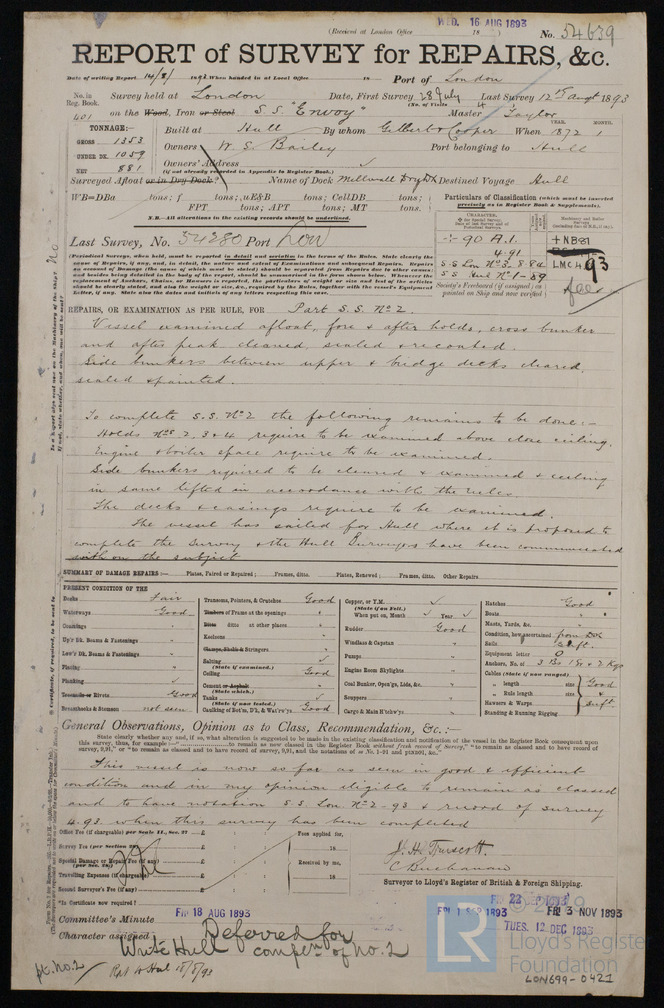 (Received at London Office WED. 16 AUG 1893 18 )
No. 54639
REPORT of SURVEY for REPAIRS, &c.
Date of writing Report 14/8/ 1893 When handed in at Local Office 18 Port of London
No. in Reg. Book. 401
Survey held at London Date, First Survey 28 July Last Survey 12th Augt 1893
(No. of Visits 4
on the Wood, Iron or Steel S.S. "Envoy" Master Taylor
TONNAGE:—
GROSS 1353
UNDER DK. 1059
NET 881
Built at Hull By whom Gilbert & Cooper When 1872 1
YEAR. MONTH.
Owners W. S. Bailey Port belonging to Hull
Owners' Address
(if not already recorded in Appendix to Register Book.)
Surveyed Afloat or in Dry Dock? Name of Dock Millwall Dry Dk Destined Voyage Hull
WB=DBa tons; f tons; uE&B tons; CellDB tons;
FPT tons; APT tons; MT tons.
N.B.—All alterations in the existing records should be underlined.
Particulars of Classification (which must be inserted precisely as in Register Book & Supplements).
Last Survey, No. 54280 Port Lon
CHARACTER,
90 A.1.
4.91
S.S Lon No 3-8.84
S S Hul No 1-89
+NB81
LMC 4,93
fee
Society's Freeboard (if assigned) as painted on Ship and now verified
(Periodical Surveys, when held, must be reported in detail and seriatim in the terms of the Rules. State clearly the cause of Repairs, if any, and, in detail, the nature and extent of Examinations and subsequent Repairs. Repairs on account of Damage (the cause of which must be stated) should be separated from Repairs due to other causes; and besides being detailed in the body of the report, should be summarised in the form shown below. Whenever the replacement of Anchors, Chains, or Hawsers is reported, the particulars of weight or size and test of the articles should be clearly stated, and also the weight or size, &c., required by the Rules, together with the vessel's Equipment Letter, if any. State also the dates and initials of any letters respecting this case.
REPAIRS, OR EXAMINATION AS PER RULE, FOR Part S.S. No 2.
Vessel examined afloat, fore & after holds, cross bunker
and after peak cleaned, scaled & recoated.
Side bunkers between upper & bridge decks cleared,
scaled & painted.
To complete S.S. No 2 the following remains to be done:—
Holds Nos 2, 3 & 4 require to be examined above close ceiling.
Engine & boiler space require to be examined.
Side bunkers required to be cleared & examined & ceiling
in same lifted in accordance with the rules.
The decks & casings require to be examined.
The vessel has sailed for Hull where it is proposed to
complete the survey & the Hull Surveyors have been communicated
with on the subject
SUMMARY OF DAMAGE REPAIRS:— Plates, Faired or Repaired; Frames, ditto. Plates, Renewed; Frames, ditto. Other Repairs
PRESENT CONDITION OF THE
Decks Fair
Waterways Good
Coamings "
Up'r Dk. Beams & Fastenings "
Low'r Dk. Beams & Fastenings "
Plating "
Planking
Treenails or Rivets Good
Breasthooks & Stemson not seen
Transoms, Pointers, & Crutches Good
Timbers of Frame at the openings "
Ditto ditto at other places "
Keelsons "
Clamps, Shelfs & Stringers "
Salting
(State if examined.)
Ceiling Good
Cement or Asphalt "
(State which.)
Tanks
(State if now tested.)
Caulking of Bot'm, D'k, & Wat'rw'ys Good
Copper, or Y.M.
(State if on Felt.)
When put on, Month Year
Rudder Good
Windlass & Capstan "
Pumps "
Engine Room Skylights "
Coal Bunker, Open'gs, Lids, &c. "
Scuppers "
Cargo & Main H'tchw'ys "
Hatches Good
Boats "
Masts, Yards, &c. "
Condition, how ascertained from Dk
Sails Suft.
Equipment letter O
Anchors, No. of 3 Bo 1 St & 2 Kgs
Cables (State if now ranged)
" length size Good
" Rule length size &
Hawsers & Warps Suft
Standing & Running Rigging
General Observations, Opinion as to Class, Recommendation, &c.:—
State clearly whether any, and if so, what alteration is suggested to be made in the existing classification and notification of the vessel in the Register Book consequent upon
this survey, thus, for example:—" to remain as now classed in the Register Book without fresh record of Survey," "to remain as classed and to have record of
survey, 9,91," or "to remain as classed and to have record of survey, 9,91, and the notations of ss No 1-91 and
This vessel is now so far as seen in good & efficient
condition and in my opinion eligible to remain as classed
and to have notation S S Lon No 2-93 & record of survey
4.93 when this survey has been completed
Office Fee (if chargeable) per Scale II., Sec. 27 £ : :
Survey Fee (per Section 28) £ : :
Special Damage or Repair Fee (if any) £ : :
(per Sec. 28)
Travelling Expenses (if chargeable) £ : :
Second Surveyor's Fee (if any) £ : :
Fees applied for,
18
Received by me,
18
S. H. Truscott.
C Buchanan
Surveyor to Lloyd's Register of British & Foreign Shipping.
*Is Certificate now required?
Committee's Minute FRI 18 AUG 1893 FRI 1 SEP 1893 FRI 22 SEP 1893 FRI 3 NOV 1893
TUES. 12 DEC 1893
Character assigned Deferred for
complen of No. 2
Write Hull
pt. No. 2
Rpt to Hul 18/8/93
© 2019
LR
Lloyd's Register
Foundation
LON699-0421